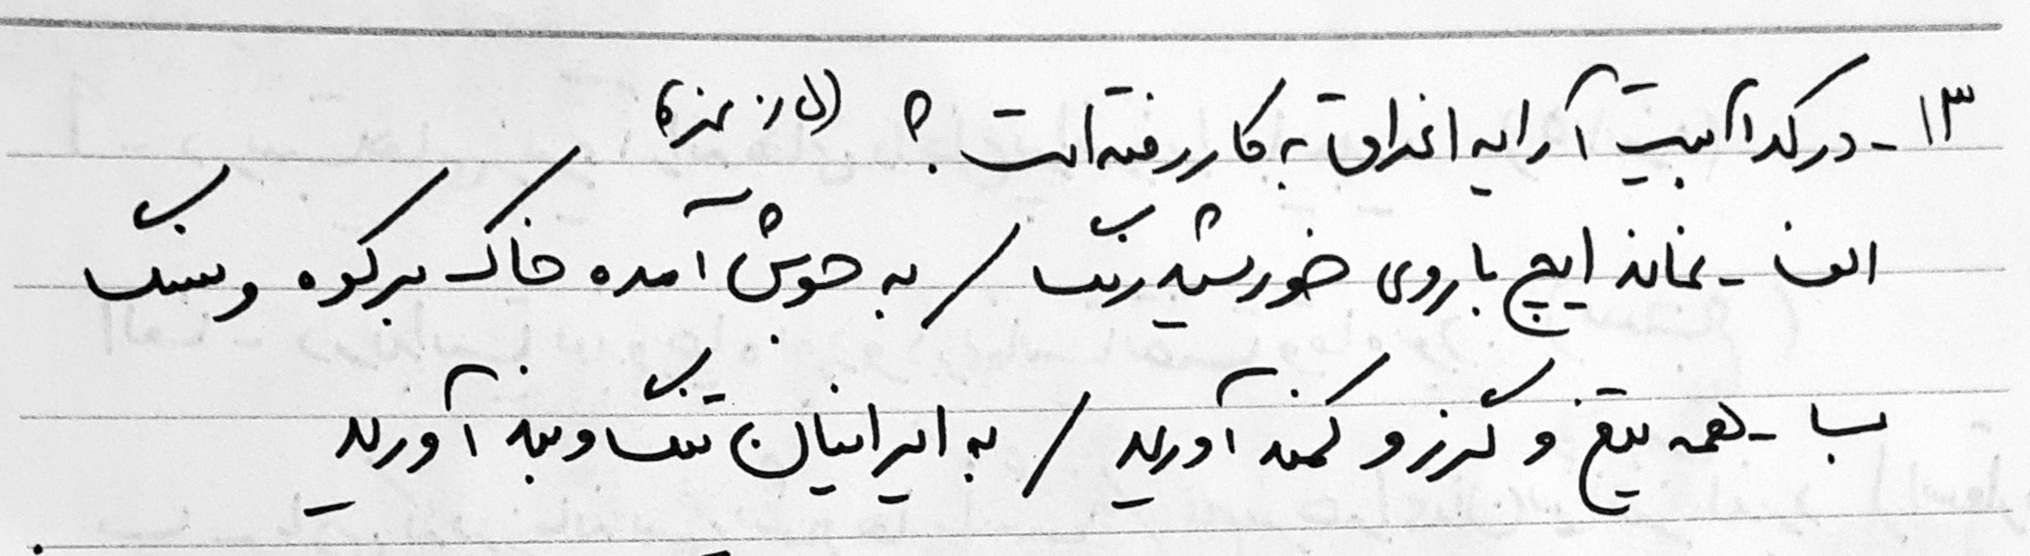 ۱۳- در کدام بیت آرایه اغراق به کار رفته است؟ (۵/. نمره)
الف - نماند ایچ با روی خورشید رنگ / به جوش آمده خاک بر کوه و سنگ
ب - همه تیغ و گرز و کمند آورید / به ایرانیان تنگ و بند آورید